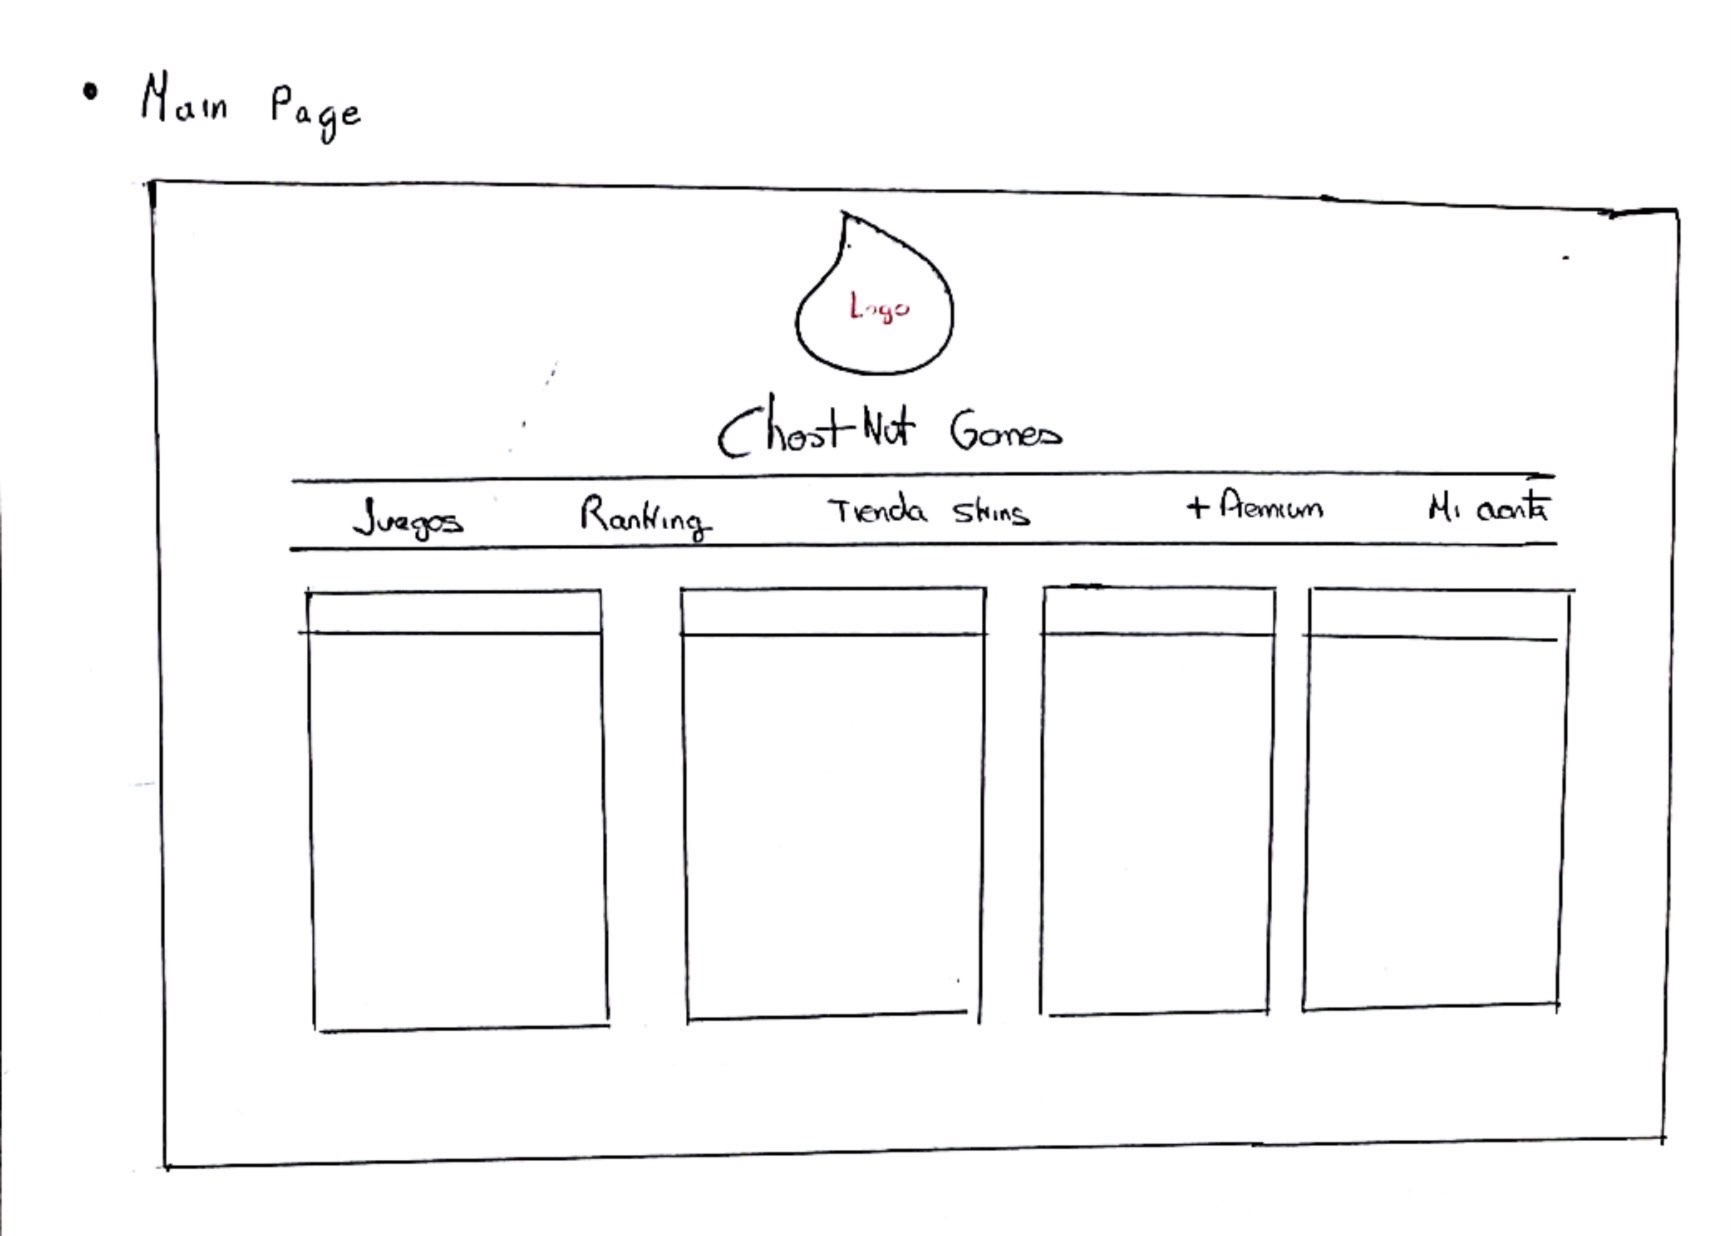 • Main Page
Logo
ChestNut Games
Juegos Ranking Tienda skins + Premium Mi cuenta